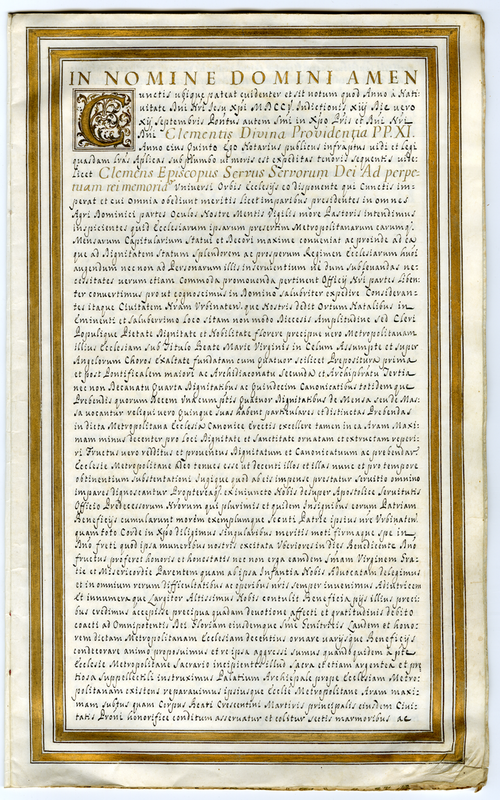 IN NOMINE DOMINI AMEN
Cunctis ubique pateat evidenter et sit notum quod Anno à Nati
vitate Dni Nri Jesu Xpi MDCCV Indictione XIIJ Die vero
XIJ Septembris Pontus autem Smi in Xpo Pris et Dni Nri
Dni Clementis Divina Providentia P.P. XI.
Anno eius Quinto Ego Notarius publicus infraptus vidi et legi
quasdam Lras Aplicas sub plumbo ut moris est expeditas tenoris sequentis vide
licet Clemens Episcopus Servus Servorum Dei Ad perpe
tuam rei memoria Universi Orbis Ecclesijs eo disponente qui Cunctis im
perat et cui Omnia obediunt meritis licet imparibus presidentes in omnes
Agri Dominici partes Oculos Nostre Mentis vigiles more Pastoris intendimus
inspicientes quid Ecclesiarum ipsarum presertim Metropolitanarum earumq
Mensarum Capitularium Statui et Decori maxime conveniat ac proinde ad ea
que ad Dignitatem Statum Splendorem ac prosperum Regimen Ecclesiarum
augendum nec non ad Personarum illis inservientium dum subleuandas ne
cessitates verum etiam Commoda promouenda pertinent Officij Nri partes Liben
ter convertimus prout cognoscimus in Domino Salubriter expedire Consideran
tes itaque Civitatem Nram Urbinaten que Nostris dedit Ortum Natalibus in
Eminenti et Saluberrimo loco Sitam non modo Diecesis Amplitudine sed Cleri
Populique Pietate Dignitate et Nobilitate florere precipue vero Metropolitanam
illius Ecclesiam sub Titulo Beate Marie Virginis in Celum Assumpte et super
Angelorum Choros Exaltate fundatam cum Quatuor scilicet Prepositura prima
et post Pontificalem maiore ac Archidiaconatu Secunda et Archipbratu Tertia
nec non Decanatu Quarta Dignitatibus ac Quindecim Canonicatibus totidemque
Prebendis quorum Decem cum ptis Quatuor Dignitatibus de Mensa seu de Mas
sa vocantur reliqui vero Quinque suas habent particulares et distinctas Prebendas
in dicta Metropolitana Ecclesia Canonice Erectis excellere tamen in ea Aram Maxi
mam minus decenter pro loci Dignitate et Sanctitate ornatam et extructam reperi
ri Fructus vero redditus et proventus Dignitatum et Canonicatuum ac prebendar
Ecclesie Metropolitane adeo tenues esse ut decenti illos et illas nunc et pro tempore
obtinentium Substentationi Iugique quod ab eis impense prestatur Servitio omnino
impares dignoscantur Propterea ex iniuncto Nobis desuper Apostolice Servitutis
Officio Predecessorum Nrorum qui plurimis et quidem Insignibus eorum Patriam
Beneficijs cumularunt morem exemplumque Secuti Patrie ipsius nre Urbinaten
quam toto Corde in Xpo diligimus singularibus meritis moti firmaque spe in
Dno freti quod ipsa muneribus nostris excitata Uberiores in dies Benedicente Dno
fructus proferet honoris et honestatis nec non erga eandem Smam Virginem Gra
tie et Misericordie Parentem quam ab ipsa Infantia Nobis Advocatam delegimus
et in omnium rerum difficultatibus ac operibus nris semper invenimus Adiutricem
Et innumera que Largitor Altissimus Nobis contulit Beneficia pijs illius preci
bus credimus accepisse precipua quadam devotione affecti et gratitudinis debito
coacti ad Omnipotentis Dei Gloriam eiusdemque sine Genitricis Laudem et hono
rem dictam Metropolitanam Ecclesiam decentius ornare varijsque Beneficijs
condecorare animo proposuimus et re ipsa aggressi sumus quandoquidem a
Ecclesie Metropolitane Sacrario incipientes illud Sacra et etiam argentea et pre
tiosa Suppellectili instruximus Palatium Archiepale prope Ecclesiam Metro
politanam existens reparavimus ipsiusque Ecclie Metropolitane Aram maxi
mam subtus quam Corpus Beati Crescentini Martiris principalis eiusdem Civi
tatis Proni honorifice conditum asservatur et colitur sectis marmoribus ac